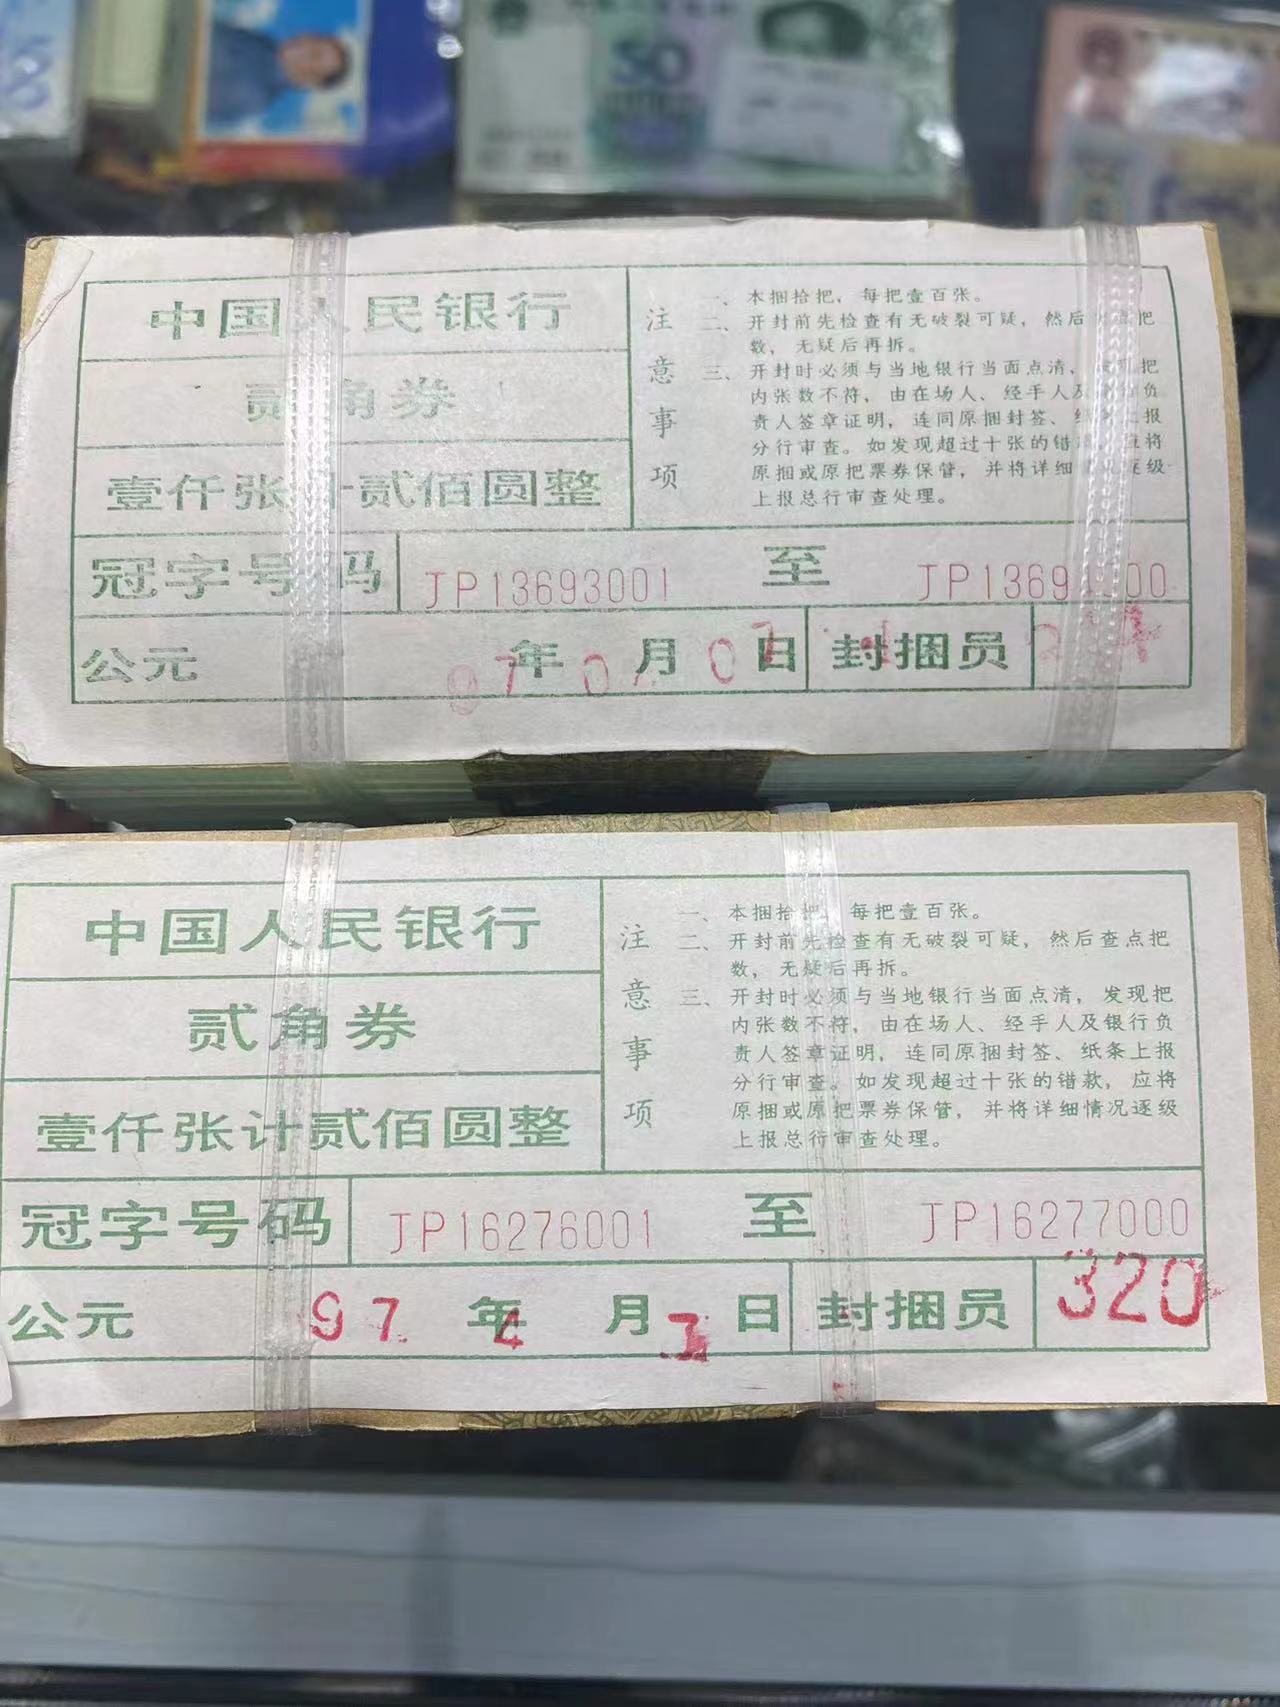 50
中国人民银行
贰角券
壹仟张计贰佰圆整
注意事项
一、本捆拾把，每把壹百张。
二、开封前先检查有无破裂可疑，然后 点把
数，无疑后再拆。
三、开封时必须与当地银行当面点清，发现把
内张数不符，由在场人、经手人及 负
责人签章证明，连同原捆封签、纸 上报
分行审查。如发现超过十张的错 应将
原捆或原把票券保管，并将详细情况逐级
上报总行审查处理。
冠字号码 JP13693001 至 JP1369 00
公元 97 年 0 月 07 日 封捆员
中国人民银行
贰角券
壹仟张计贰佰圆整
注意事项
一、本捆拾把，每把壹百张。
二、开封前先检查有无破裂可疑，然后查点把
数，无疑后再拆。
三、开封时必须与当地银行当面点清，发现把
内张数不符，由在场人、经手人及银行负
责人签章证明，连同原捆封签、纸条上报
分行审查。如发现超过十张的错款，应将
原捆或原把票券保管，并将详细情况逐级
上报总行审查处理。
冠字号码 JP16276001 至 JP16277000
公元 97 年 4 月 日 封捆员 320